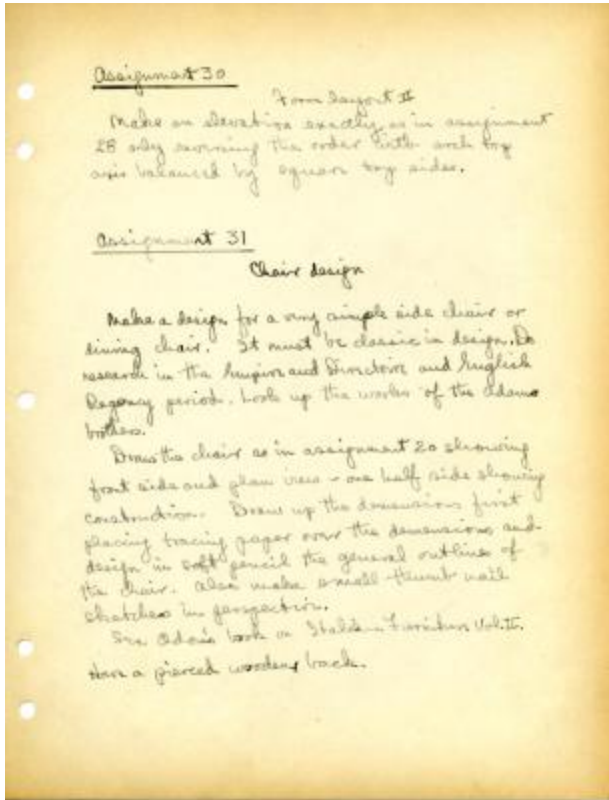 Assignment 30
Form layout II
Make an elevation exactly as in assignment
28 only reversing the order with arch top
axis balanced by square top sides.
Assignment 31
Chair design
Make a design for a very simple side chair or
dining chair. It must be classic in design. Do
research in the Empire and Directoire and English
Regency period. Look up the works of the Adams
brothers.
Draw the chair as in assignment 20 showing
front side and plan view - one half side showing
construction. Draw up the dimensions first
placing tracing paper over the dimensions and
design in soft pencil the general outlines of
the chair. Also make small thumb nail
sketches in perspective.
See Odom's book on Italian Furniture Vol. II.
Have a pierced wooden back.